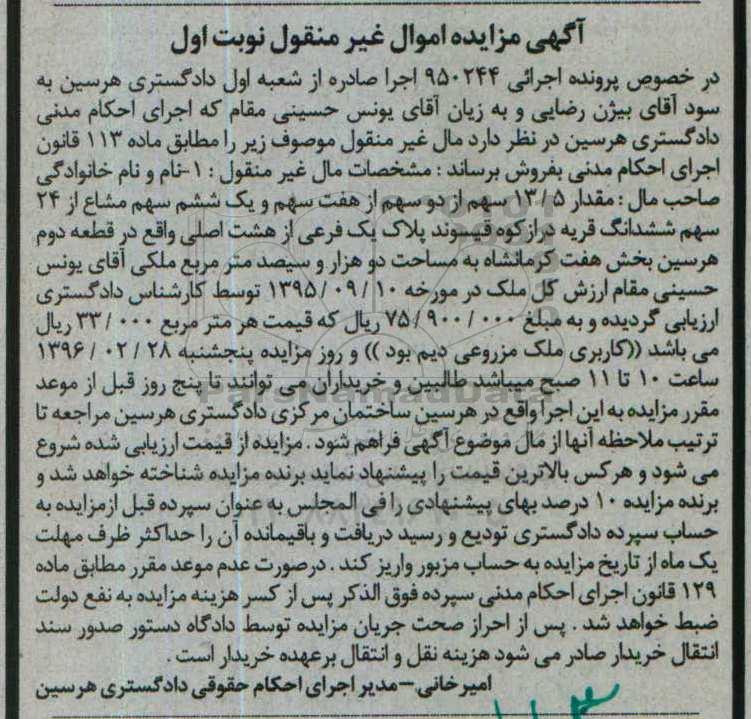 آگهی مزایده اموال غیر منقول نوبت اول
در خصوص پرونده اجرائی ۹۵۰۲۴۴ اجرا صادره از شعبه اول دادگستری هرسین به
سود آقای بیژن رضایی و به زیان آقای یونس حسینی مقام که اجرای احکام مدنی
دادگستری هرسین در نظر دارد مال غیر منقول موصوف زیر را مطابق ماده ۱۱۳ قانون
اجرای احکام مدنی بفروش برساند : مشخصات مال غیر منقول : ۱-نام و نام خانوادگی
صاحب مال : مقدار ۱۳/۵ سهم از دو سهم از هفت سهم و یک ششم سهم مشاع از ۲۴
سهم ششدانگ قریه درازکوه قیسوند پلاک یک فرعی از هشت اصلی واقع در قطعه دوم
هرسین بخش هفت کرمانشاه به مساحت دو هزار و سیصد متر مربع ملکی آقای یونس
حسینی مقام ارزش کل ملک در مورخه ۱۳۹۵/۰۹/۱۰ توسط کارشناس دادگستری
ارزیابی گردیده و به مبلغ ۷۵/۹۰۰/۰۰۰ ریال که قیمت هر متر مربع ۳۳/۰۰۰ ریال
می باشد ((کاربری ملک مزروعی دیم بود )) و روز مزایده پنجشنبه ۱۳۹۶/۰۲/۲۸
ساعت ۱۰ تا ۱۱ صبح میباشد طالبین و خریداران می توانند تا پنج روز قبل از موعد
مقرر مزایده به این اجرا واقع در هرسین ساختمان مرکزی دادگستری هرسین مراجعه تا
ترتیب ملاحظه آنها از مال موضوع آگهی فراهم شود . مزایده از قیمت ارزیابی شده شروع
می شود و هرکس بالاترین قیمت را پیشنهاد نماید برنده مزایده شناخته خواهد شد و
برنده مزایده ۱۰ درصد بهای پیشنهادی را فی المجلس به عنوان سپرده قبل ازمزایده به
حساب سپرده دادگستری تودیع و رسید دریافت و باقیمانده آن را حداکثر ظرف مهلت
یک ماه از تاریخ مزایده به حساب مزبور واریز کند . درصورت عدم موعد مقرر مطابق ماده
۱۲۹ قانون اجرای احکام مدنی سپرده فوق الذکر پس از کسر هزینه مزایده به نفع دولت
ضبط خواهد شد . پس از احراز صحت جریان مزایده توسط دادگاه دستور صدور سند
انتقال خریدار صادر می شود هزینه نقل و انتقال برعهده خریدار است .
امیرخانی – مدیر اجرای احکام حقوقی دادگستری هرسین